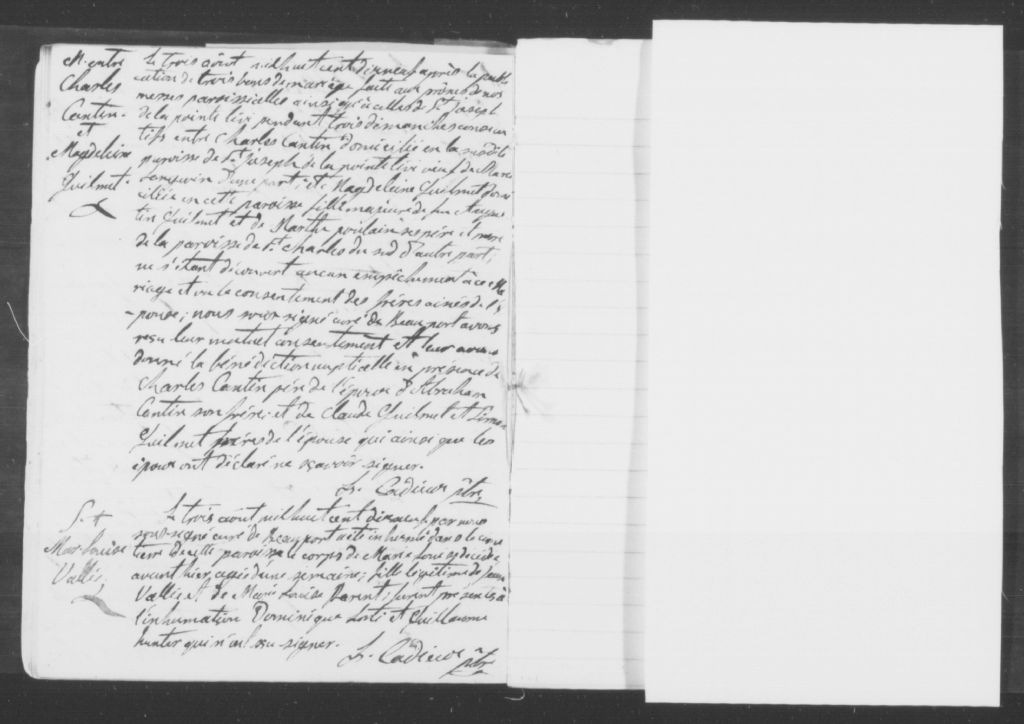 M. entre
Charles
Cantin
et
Magdeleine
Guilmet.
Le trois août mil huit cent dixneuf après la publi
cation de trois bans de mariage faite aux prônes de nos
messes paroissielles ainsi qu'à celles de St. Joseph
de la pointe levi pendant trois dimanches consecu
tifs entre Charles Cantin domicilié en la susdite
paroisse de St. Joseph de la pointe levi veuf de Marie
d'une part; et Magdeleine Guilmet domi
ciliée en cette paroisse fille majeure de feu Augus
tin Guilmet et de Marthe poulain ses père et mere
de la paroisse de St. Charles du sud d'autre part;
ne s'étant découvert aucun empêchement à ce Ma
riage et vu le consentement des frères ainés de l'é
pouse; nous sous-signé curé de Beauport avons
reçu leur mutuel consentement et leur avons
donné la bénédiction nuptialle en presence de
Charles Cantin père de l'époux d'Abraham
Cantin son frère; et de Claude Guilmet et
Guilmet frères de l'épouse qui ainsi que les
époux ont déclaré ne sçavoir signer.
ptre
S.
Mar. louise
Vallée
Le trois août mil huit cent dixneuf par nous
sous-signé curé de Beauport a été inhumé dans le cime
tiere de cette paroisse le corps de Marie Louise décédée
avant hier, agée d'une semaine; fille légitime de Jean
Vallée et de Marie Louise Parent; furent présents à
l'inhumation Dominique Lortí et Guillaume
hunter qui n'ont sçu signer.
ptre